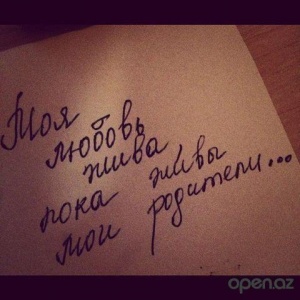 Моя
любовь
жива
пока живы
мои родители...
open.az